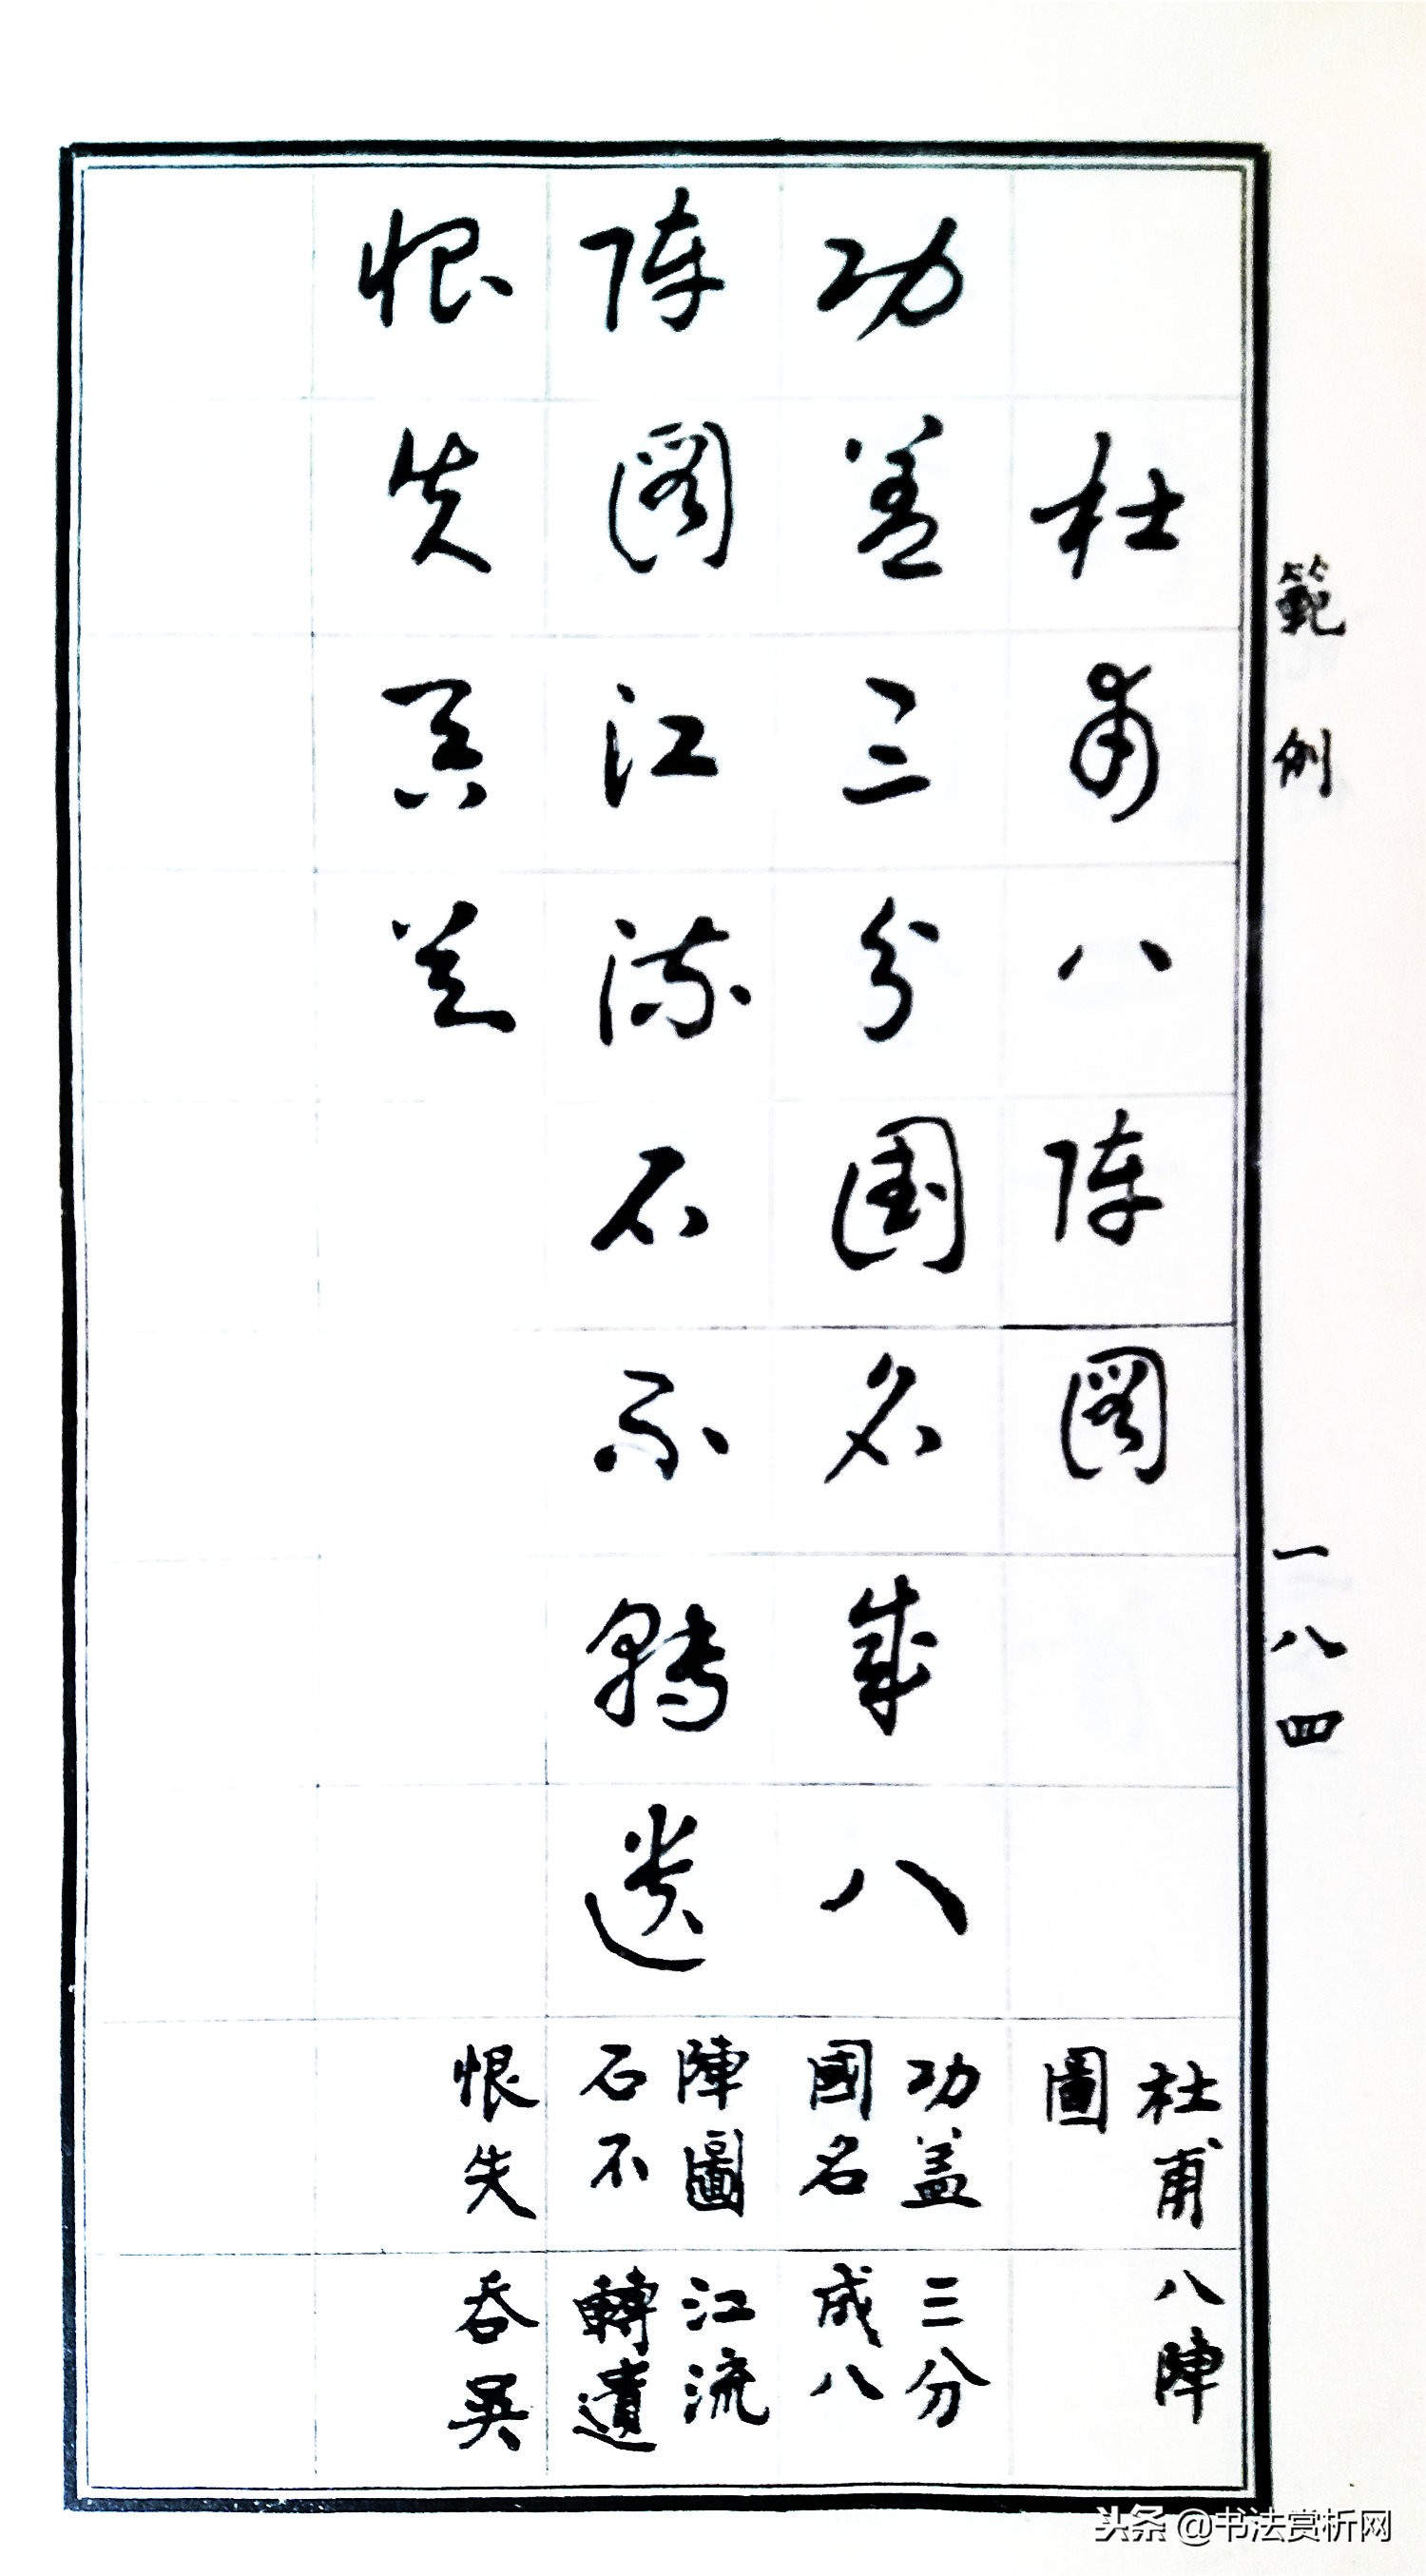 範例
一八四
杜甫八陣圖
功蓋三分國名成八
陣圖江流石不轉遺
恨失吞吴
杜甫八陣
圖
功蓋三分
國名成八
陣圖江流
石不轉遺
恨失吞吴
头条 @书法赏析网